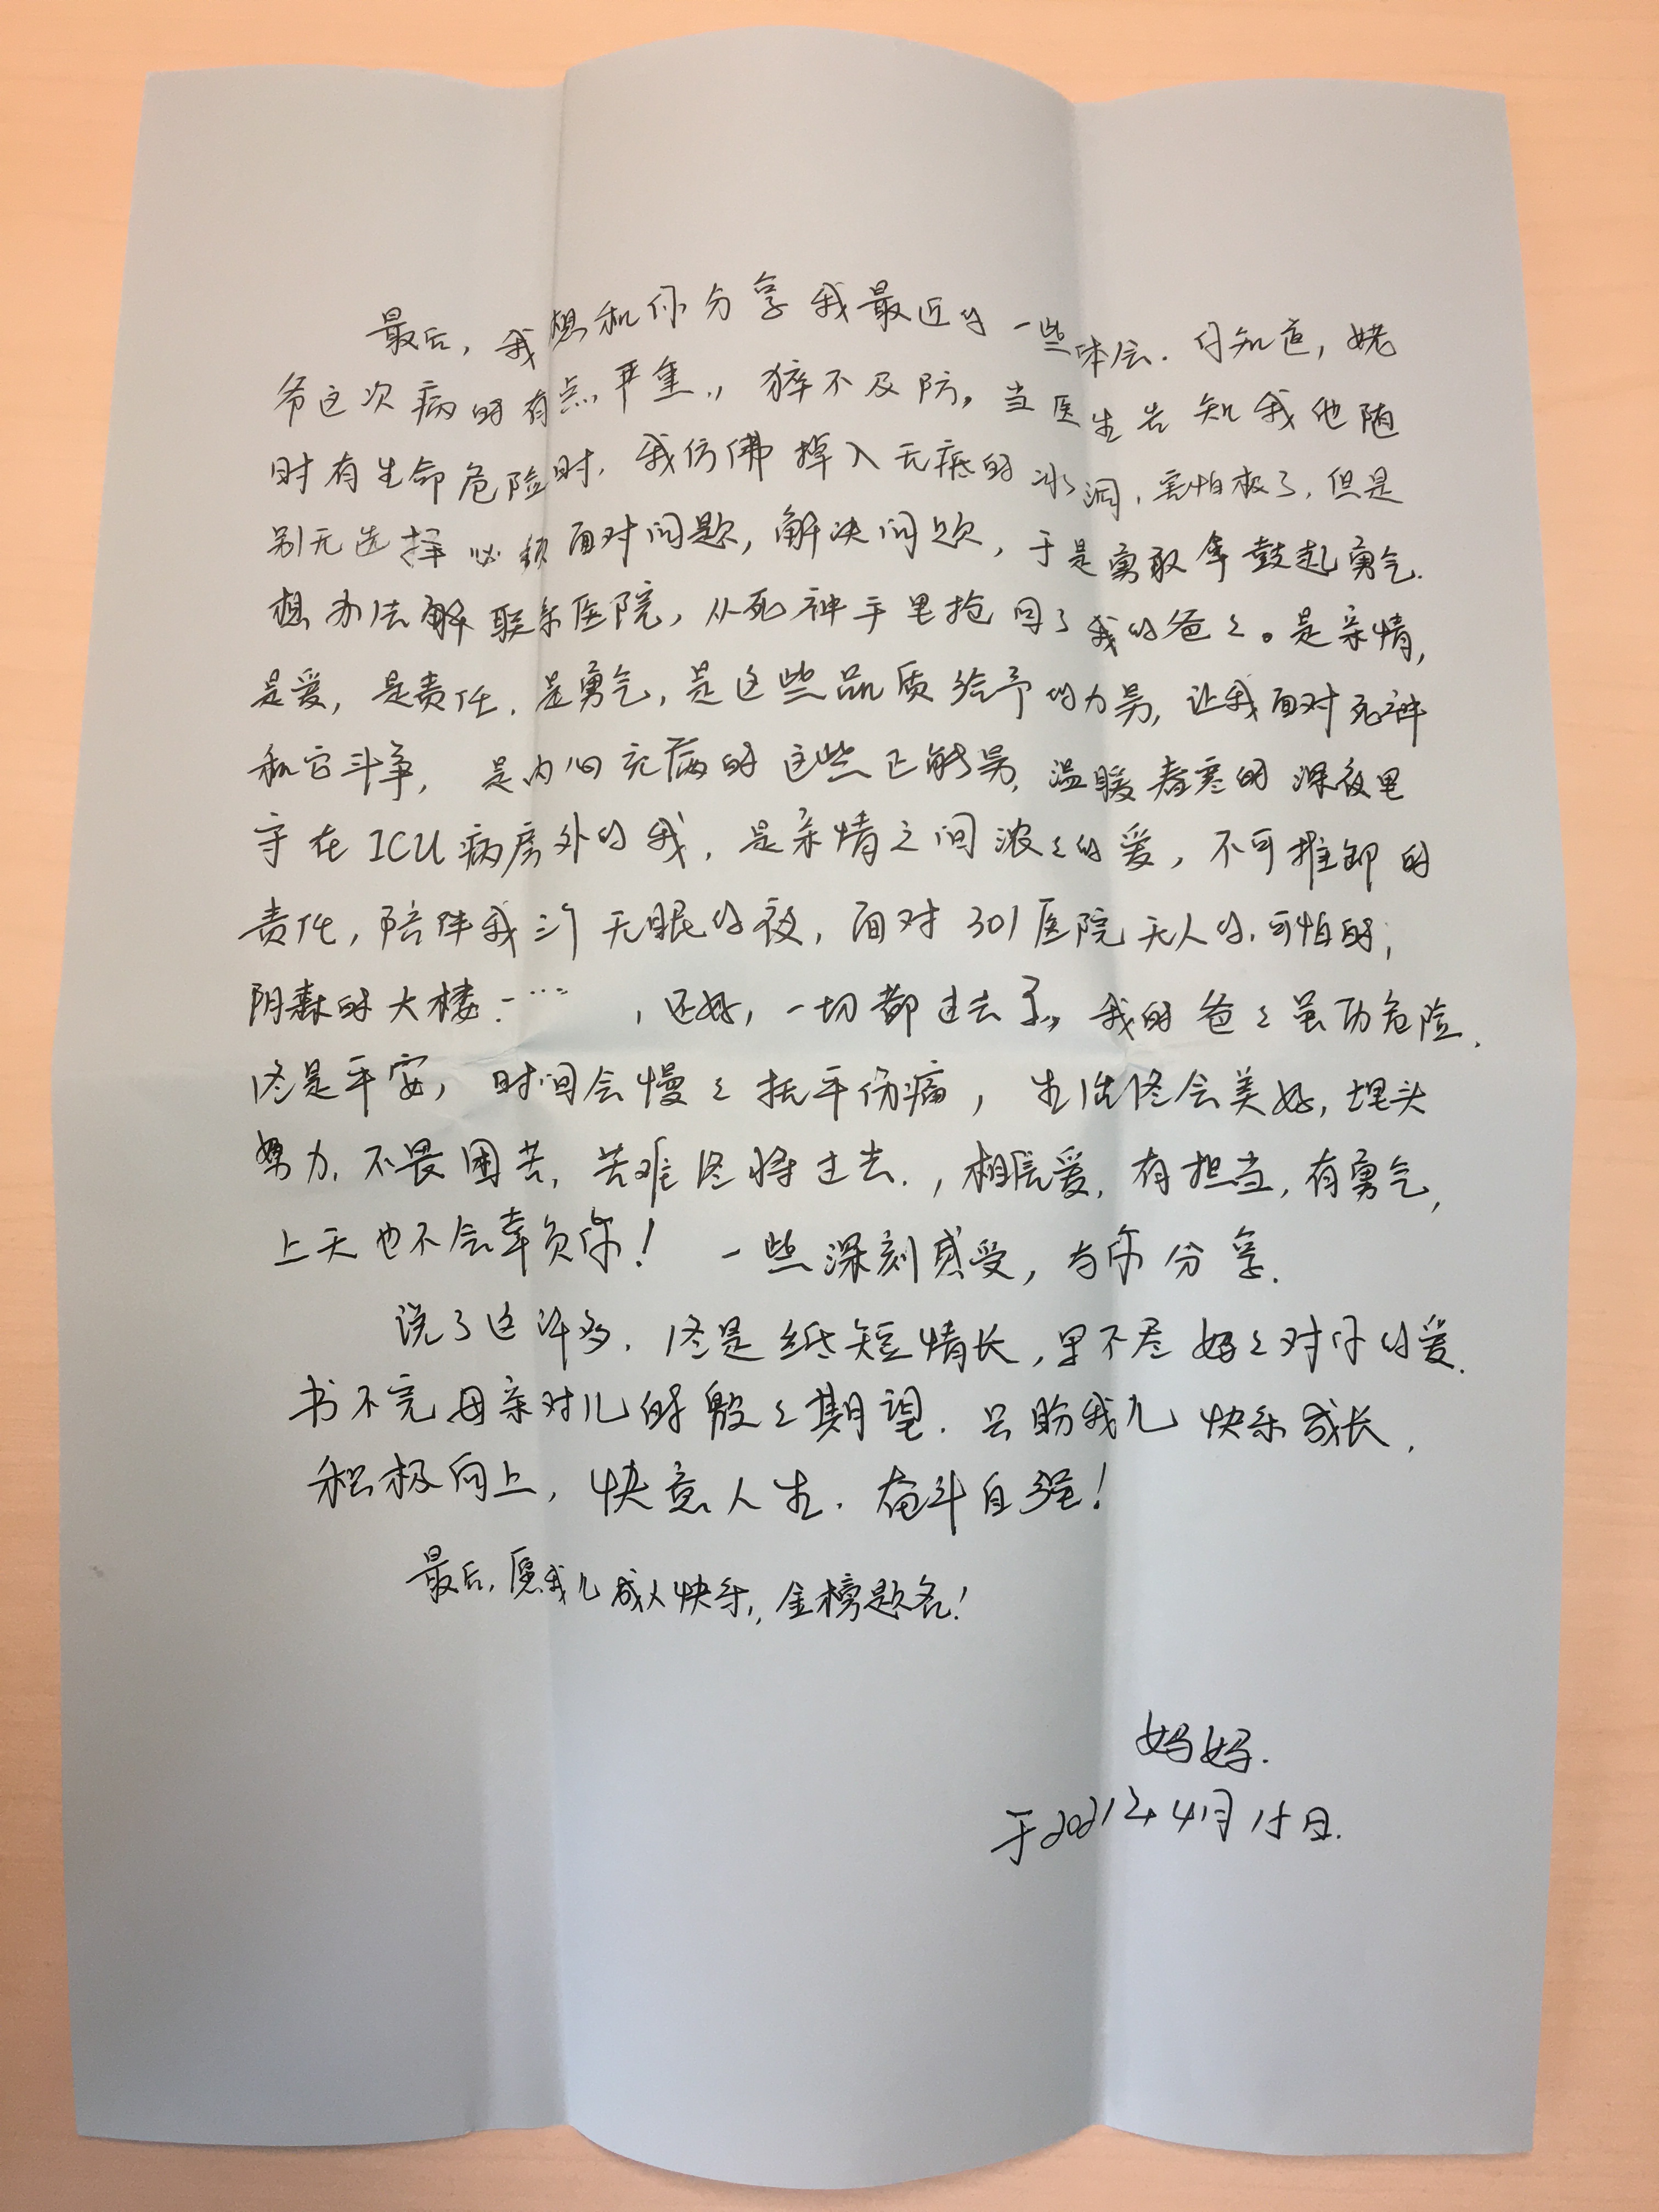 最后，我想和你分享我最近的一些体会．你知道，姥
爷这次病的有点严重，，猝不及防。当医生告知我他随
时有生命危险时，我仿佛掉入无底的冰洞，害怕极了，但是
别无选择必须面对问题，解决问题，于是勇敢拿鼓起勇气．
想办法解联系医院，从死神手里抢回了我的爸々。是亲情，
是爱，是责任．是勇气，是这些品质给予的力量，让我面对死神
和它斗争，是内心充满的这些正能量，温暖春寒的深夜里
守在ICU病房外的我，是亲情之间浓々的爱，不可推卸的
责任，陪伴我三个无眠的夜，面对301医院无人的．可怕的，
阴森的大楼……，还好，一切都过去了。我的爸々虽历危险．
终是平安，时间会慢々抚平伤痛，生活终会美好，埋头
努力，不畏困苦，苦难终将过去．，相信爱，有担当，有勇气，
上天也不会辜负你！一些深刻感受，与你分享．
说了这许多．终是纸短情长，里不尽妈々对你的爱．
书不完母亲对儿的殷々期望．只盼我儿快乐成长，
积极向上，快意人生．奋斗自强！
最后，愿我儿成人快乐，金榜题名！
妈妈．
于2021年4月15日．